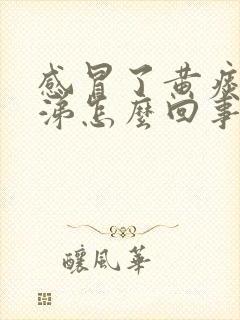 感冒了黄痰
涕怎麼回事
釀風華